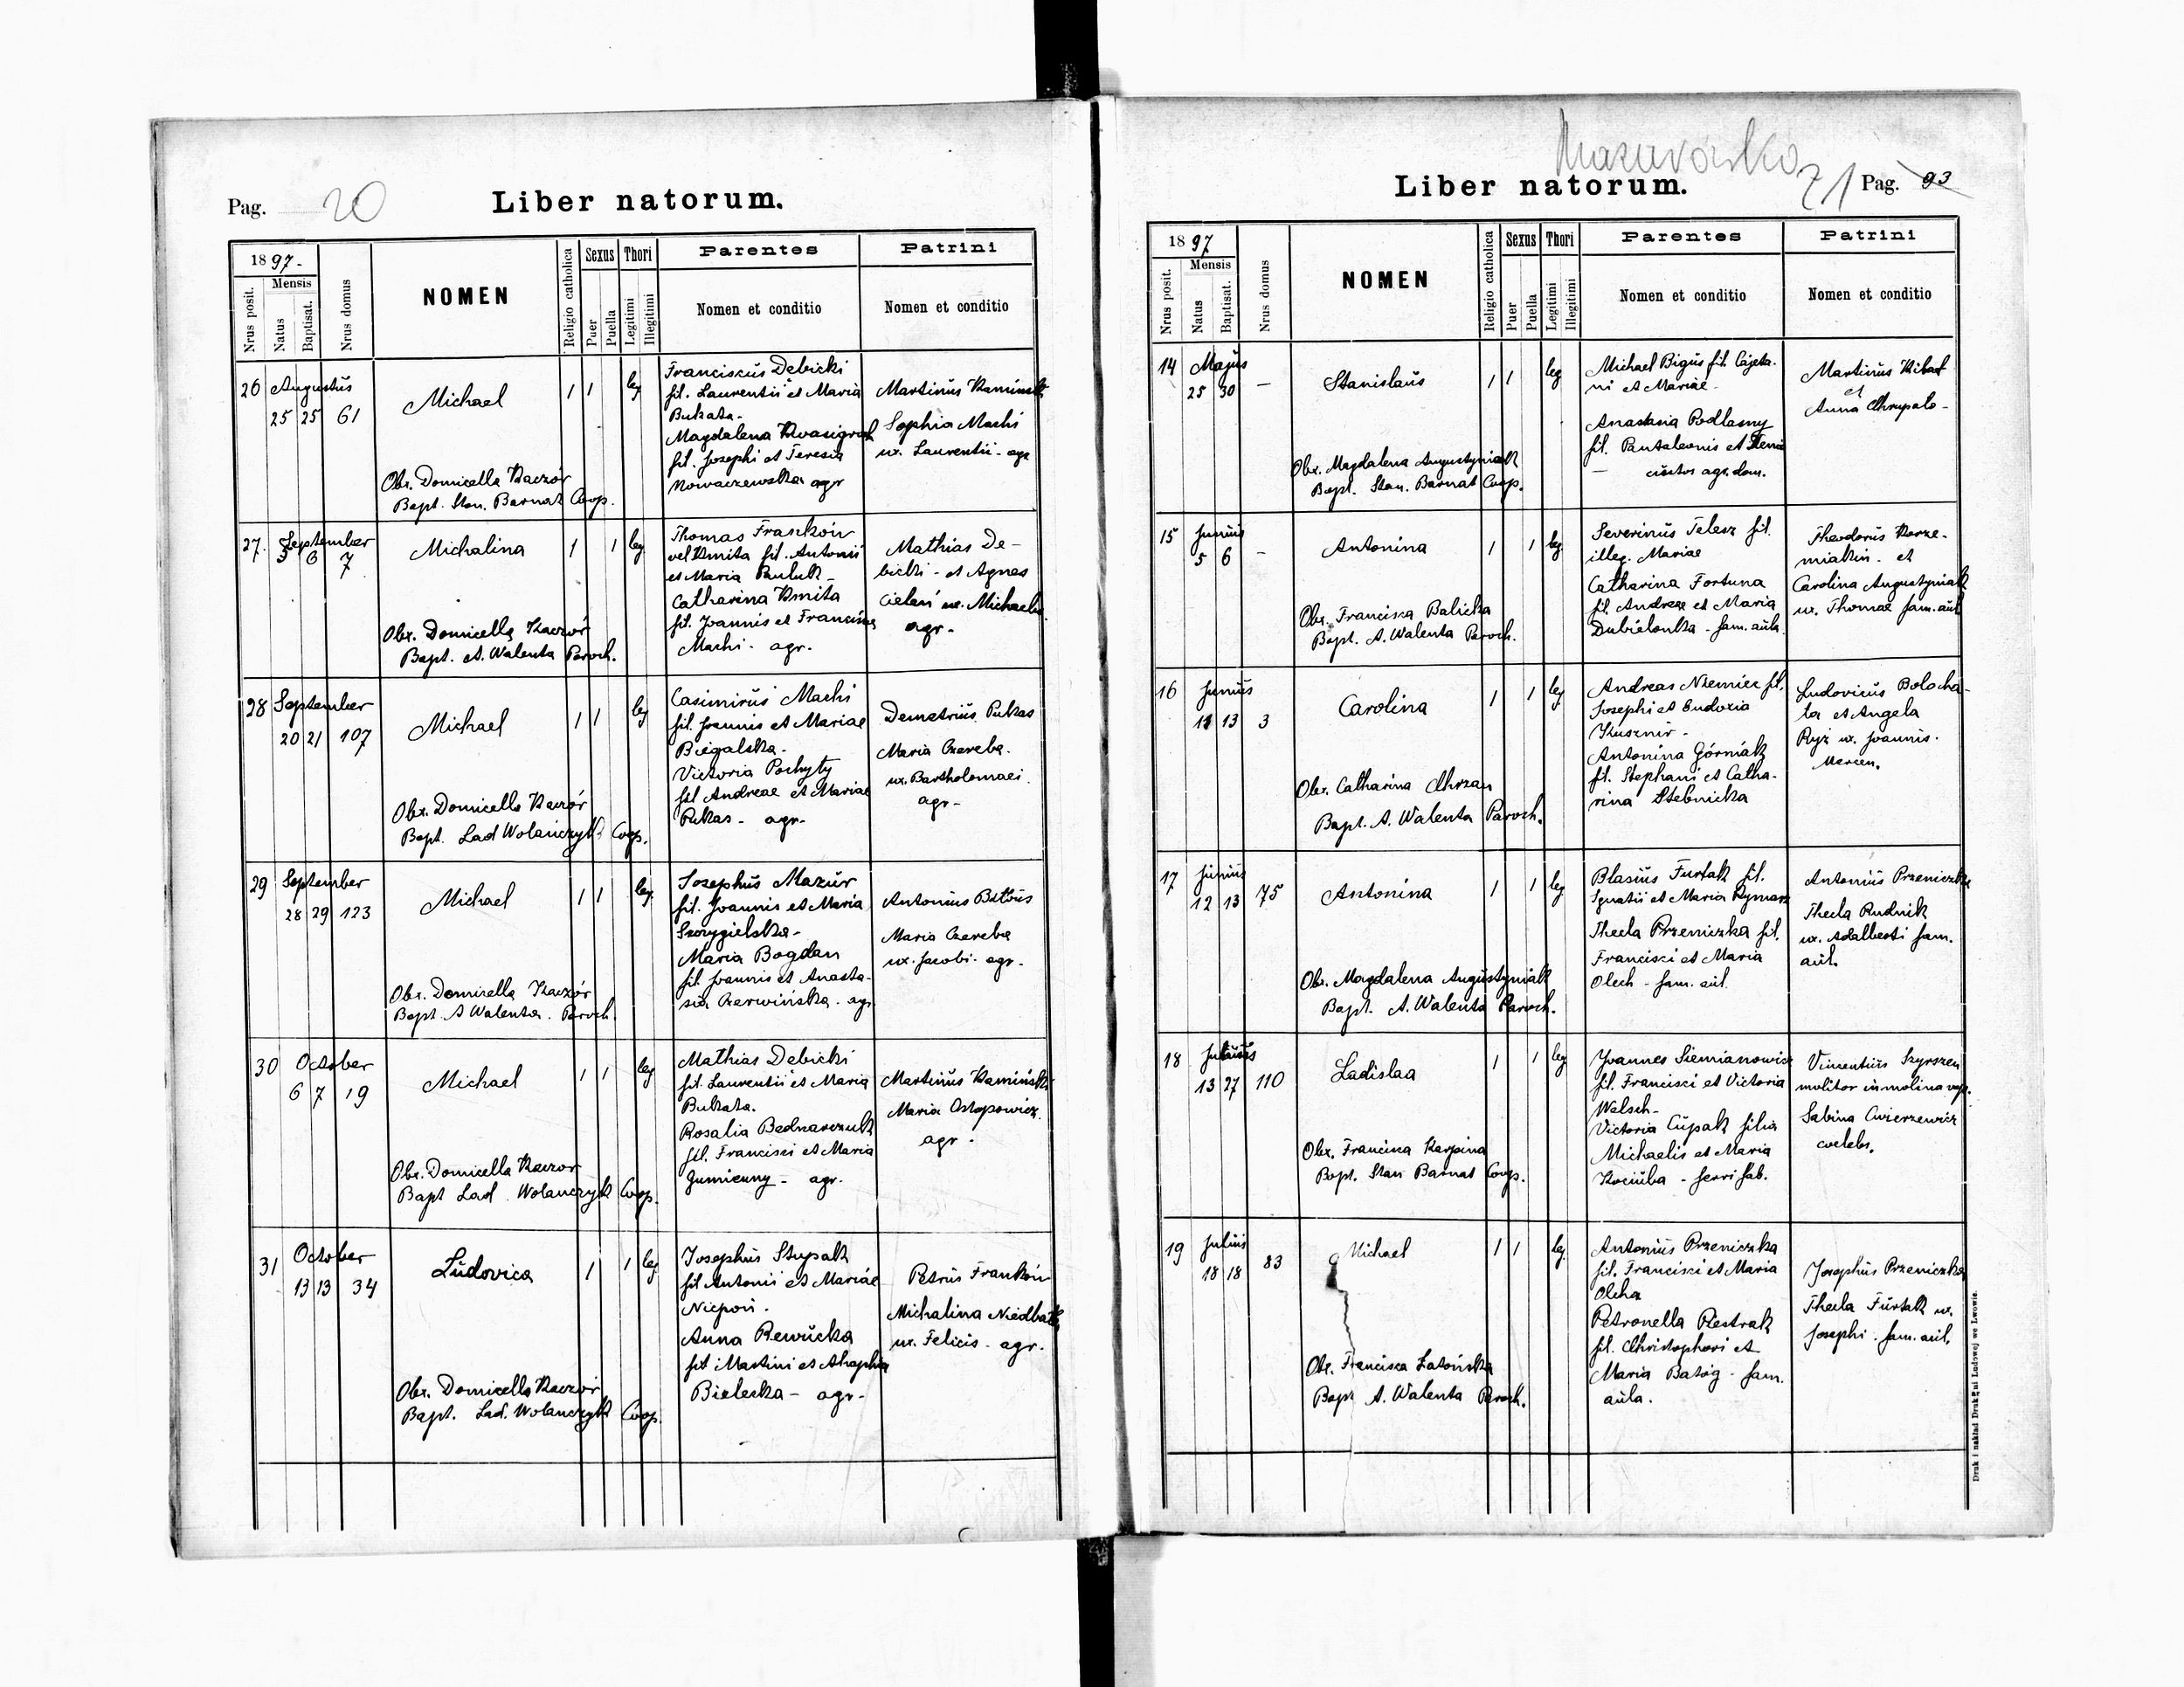 Pag. 20
Liber natorum.
1897.
Mensis
Nrus posit.
Natus
Baptisat.
Nrus domus
NOMEN
Religio catholica
Sexus
Puer
Puella
Thori
Legitimi
Illegitimi
Parentes
Nomen et conditio
Patrini
Nomen et conditio
26 Augustus
25 25 61
Michael
1 1 leg
Obs. Domicella Kaczór
Bapt. Stan. Barnat Coop.
Franciscus Debicki
fil. Laurentii et Maria
Bukata -
Magdalena
fil. Josephi et Teresia
Nowaczewska agr
Martinus Kaminski
Sophia Machi
ux. Laurentii - agr
27. September
5 6 7
Michalina
1 1 leg
Obs. Domicella Kaczór
Bapt. A. Walenta Paroch.
Thomas Franków
vel Kmita fil. Antonii
et Maria
Catharina Kmita
fil. Joannis et Francisca
Machi - agr.
Mathias De-
bicki - et Agnes
Cieleń ux. Michaelis
agr -
28 September
20 21 107
Michael
1 1 leg
Obs. Domicella Kaczór
Bapt. Lad Wolańczyk Coop.
Casimirus Machi
fil. Joannis et Mariae
Biegalska -
Victoria Pochyty
fil Andreae et Mariae
Pukas - agr -
Demetrius Pukas
Maria Czereba.
ux. Bartholomaei.
agr -
29 September
28 29 123
Michael
1 1 leg
Obs. Domicella Kaczór
Bapt. A Walenta. Paroch.
Josephus Mazur
fil. Joannis et Maria
Szczygielska -
Maria Bogdan
fil. Joannis et Anasta-
sia Czerwińska - agr
Antonius Bitous
Maria Czereba
ux. Jacobi - agr -
30 October
6 7 19
Michael
1 1 leg
Obs. Domicella Kaczor
Bapt Lad. Wolanczyk Coop.
Mathias Debicki
fil. Laurentii et Maria
Bukata.
Rosalia Bednarczuk
fil. Francisci et Maria
Gumienny - agr.
Martinus Kamiński
Maria Ostapowicz
agr -
31 October
13 13 34
Ludovica
1 1 leg
Obs. Domicella Kaczór
Bapt. Lad. Wolanczyk Coop.
Josephus Stupak
fil Antonii et Mariae
Niepoń -
Anna Rewucka
fil Martini et Ahaphia
Bielecka - agr -
Petrus Franków
Michalina
ux. Felicis - agr.
Mazurówka
Liber natorum.
21 Pag. 93
1897
Mensis
Nrus posit.
Natus
Baptisat.
Nrus domus
NOMEN
Religio catholica
Sexus
Puer
Puella
Thori
Legitimi
Illegitimi
Parentes
Nomen et conditio
Patrini
Nomen et conditio
14 Majus
25 30 -
Stanislaus
1 1 leg
Obs. Magdalena Augustyniak
Bapt. Stan. Barnat Coop.
Michael Bigus fil. Cajeta-
ni et Mariae -
Anastasia Podlasny
fil. Pantaleonis et
- custos agr. dom.
Martinus
et
Anna Chrupało -
15 Junius
5 6 -
Antonina
1 1 leg
Obs. Francisca Balicka
Bapt. A. Walenta Paroch.
Severinus Telesz fil.
illeg. Mariae
Catharina Fortuna
fil. Andreae et Maria
Dubielonka - fam. aula
Theodorus Korze-
miakin - et
Carolina Augustyniak
ux. Thomae fam. aul
16 Junius
11 13 3
Carolina
1 1 leg
Obs. Catharina Chrzan
Bapt. A. Walenta Paroch.
Andreas Niemiec fil.
Josephi et Eudoxia
Kusznir -
Antonina Górniak
fil. Stephani et Catha-
rina Stebnicka
Ludovicus Bolocha-
ta et Angela
Ryż ux. Joannis -
Mercen.
17 Junius
12 13 75
Antonina
1 1 leg
Obs. Magdalena Augustyniak
Bapt. A. Walenta Paroch.
Blasius Furtak fil.
Ignatii et Maria Rymarz
Thecla Przeniczka fil.
Francisci et Maria
Olech - fam. aul.
Antonius Przeniczka
Thecla Rudnik
ux. Adalberti fam.
aul.
18 Julius
13 27 110
Ladislaa
1 1 leg
Obs. Francisca Karpina
Bapt. Stan Barnat Coop.
Joannes Siemianowicz
fil. Francisci et Victoria
Welsch -
Victoria Cupak filia
Michaelis et Maria
Kociuba - ferri fab.
Vincentius Szyrszen
molitor in molina vap.
Sabina Cwierzewicz
coelebs.
19 Julius
18 18 83
Michael
1 1 leg.
Obs. Francisca Łatoińska
Bapt A. Walenta Paroch.
Antonius Przeniczka
fil. Francisci et Maria
Olcha
Petronella Riestrak
fil. Christophori et
Maria Batóg - fam.
aula.
Josephus Przeniczka
Thecla Furtak ux.
Josephi - fam. aul.
Druk i nakład Drukarni Ludowej we Lwowie.